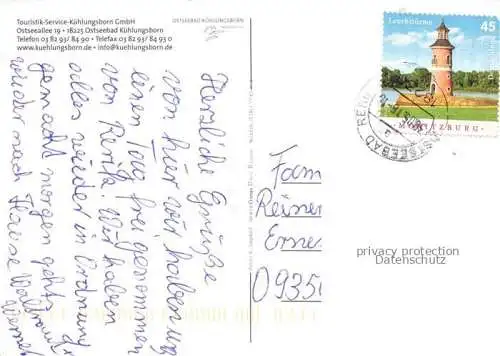 Touristik-Service-Kühlungsborn GmbH
Ostseeallee 19 • 18225 Ostseebad Kühlungsborn
Telefon 03 82 93/ 84 90 • Telefax 03 82 93/ 84 93 0
www.kuehlungsborn.de • info@kuehlungsborn.de
OSTSEEBAD KÜHLUNGSBORN
Herzliche Grüße
von hier wir haben uns
einen Tag frei genommen
von Rerik. Wir haben
alles wieder in Ordnung
gemacht morgen geht's
wieder nach Hause Waltraud
Werner
Leuchttürme
45
MORITZBURG
OSTSEEBAD RERIK
Fam
Reiner
Ernes
0935
privacy protection
Datenschutz